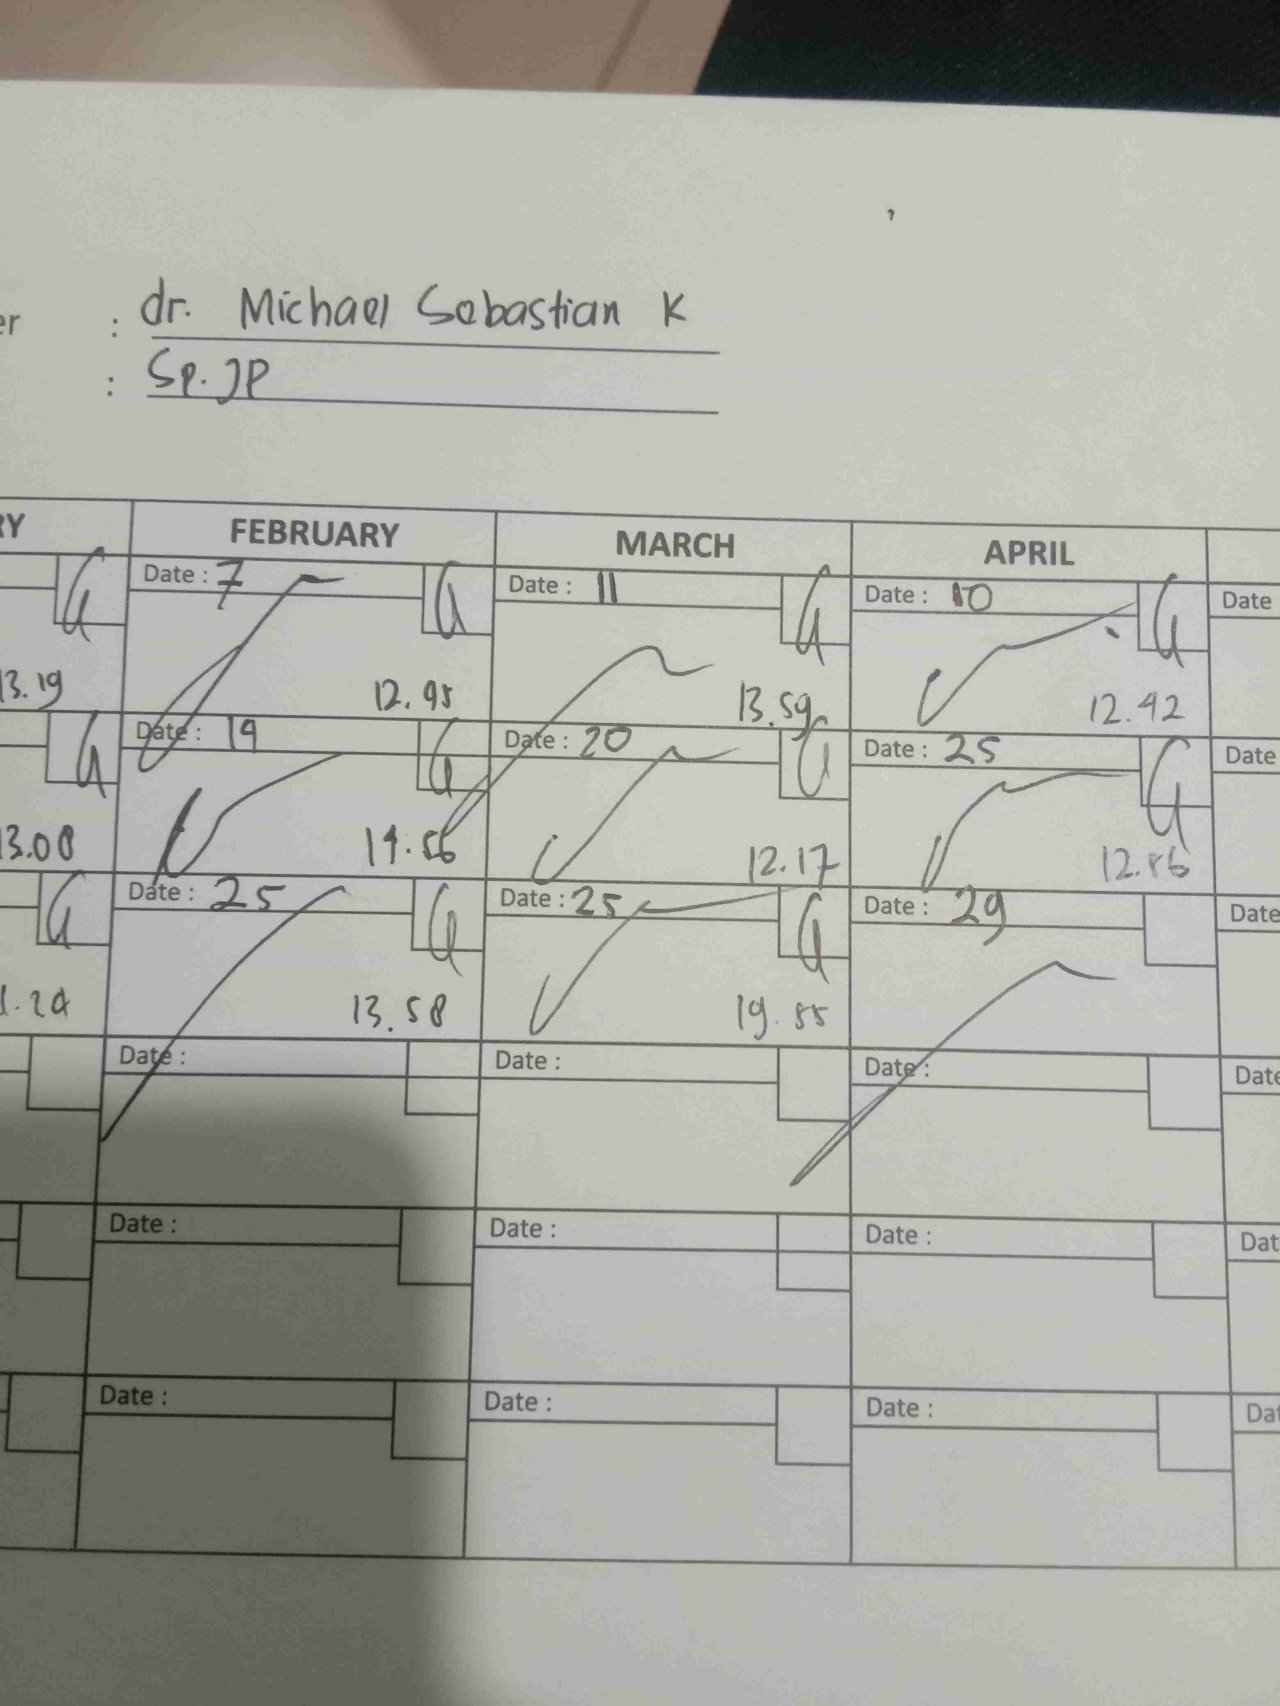 er : dr. Michael Sebastian K
: Sp. JP
RY FEBRUARY MARCH APRIL
Date : 7 Date : 11 Date : 10 Date
13.19 12.45 13.59 12.42
Date : 19 Date : 20 Date : 25 Date
13.08 14.56 12.17 12.56
Date : 25 Date : 25 Date : 29 Date
13.58 19.55
Date : Date : Date : Date
Date : Date : Date : Dat
Date : Date : Date : Dat